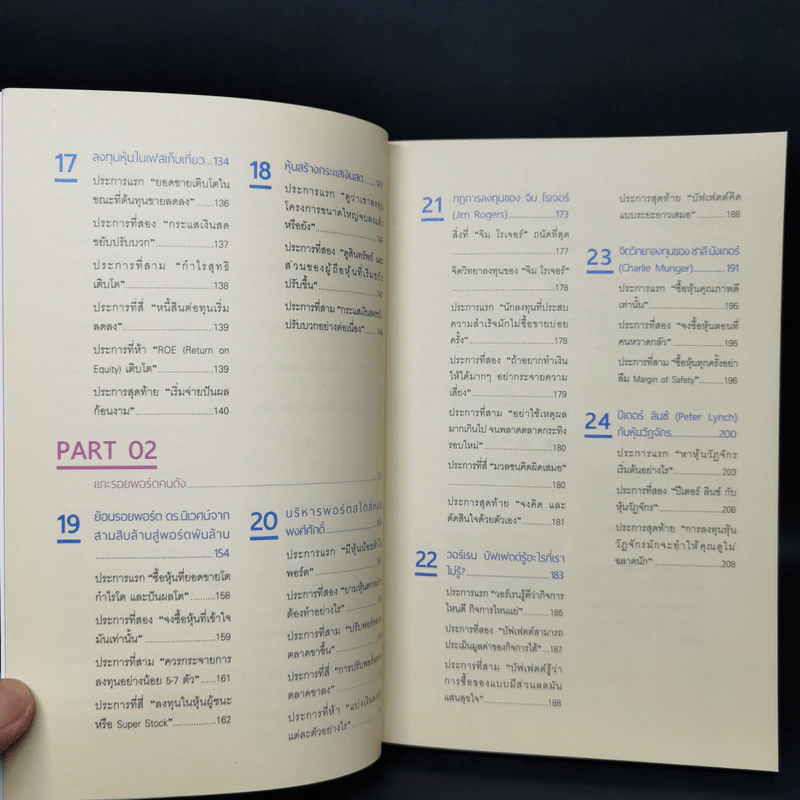 17 ลงทุนหุ้นในเฟสเก็บเกี่ยว...134
ประการแรก "ยอดขายเติบโตใน
ขณะที่ต้นทุนขายลดลง"
........................136
ประการที่สอง "กระแสเงินสด
ขยับปรับบวก"................137
ประการที่สาม "กำไรสุทธิ
เติบโต"........................138
ประการที่สี่ "หนี้สินต่อทุนเริ่ม
ลดลง"........................139
ประการที่ห้า "ROE (Return on
Equity) เติบโต"................139
ประการสุดท้าย "เริ่มจ่ายปันผล
ก้อนงาม"........................140
PART 02
แกะรอยพอร์ตคนดัง
19 ย้อนรอยพอร์ต ดร.นิเวศน์จาก
สามสิบล้านสู่พอร์ตพันล้าน
........................154
ประการแรก "ซื้อหุ้นที่ยอดขายโต
กำไรโต และปันผลโต"
........................158
ประการที่สอง "จงซื้อหุ้นที่เข้าใจ
มันเท่านั้น"................159
ประการที่สาม "ควรกระจายการ
ลงทุนอย่างน้อย 5-7 ตัว"......161
ประการที่สี่ "ลงทุนในหุ้นผู้ชนะ
หรือ Super Stock"............162
18 หุ้นสร้างกระแสเงินสด
ประการแรก "ดูว่าเขาลงทุน
โครงการขนาดใหญ่จบลงแล้ว
หรือยัง"
ประการที่สอง "ดูสินทรัพย์ และ
ส่วนของผู้ถือหุ้นที่เริ่มขยับ
ปรับขึ้น"
ประการที่สาม "กระแสเงินสดขยับ
ปรับบวกอย่างต่อเนื่อง"
20 บริหารพอร์ตสไตล์
พงศ์ศักดิ์
ประการแรก "มีหุ้นน้อยตัวใน
พอร์ต"
ประการที่สอง "ยามหุ้นตก
ต้องทำอย่างไร"
ประการที่สาม "ปรับพอร์ต
ตลาดขาขึ้น"
ประการที่สี่ "การปรับพอร์ต
ตลาดขาลง"
ประการที่ห้า "แบ่งเงิน
แต่ละตัวอย่างไร"
21 กฎการลงทุนของ จิม โรเจอร์
(Jim Rogers)................173
สิ่งที่ "จิม โรเจอร์" ถนัดที่สุด
........................177
จิตวิทยาลงทุนของ "จิม โรเจอร์"
........................178
ประการแรก "นักลงทุนที่ประสบ
ความสำเร็จมักไม่ซื้อขายบ่อย
ครั้ง"........................178
ประการที่สอง "ถ้าอยากทำเงิน
ให้ได้มากๆ อย่ากระจายความ
เสี่ยง"........................179
ประการที่สาม "อย่าใช้เหตุผล
มากเกินไป จนพลาดตลาดกระทิง
รอบใหม่"........................180
ประการที่สี่ "มวลชนคิดผิดเสมอ"
........................180
ประการสุดท้าย "จงคิด และ
ตัดสินใจด้วยตัวเอง"............181
22 วอร์เรน บัฟเฟตต์รู้อะไรที่เรา
ไม่รู้?........................183
ประการแรก "วอร์เรนรู้ดีว่ากิจการ
ไหนดี กิจการไหนแย่"......185
ประการที่สอง "บัฟเฟตต์สามารถ
ประเมินมูลค่าของกิจการได้"....187
ประการที่สาม "บัฟเฟตต์รู้ว่า
การซื้อของแบบมีส่วนลดมัน
แสนสุขใจ"........................188
ประการสุดท้าย "บัฟเฟตต์คิด
แบบระยะยาวเสมอ"............188
23 จิตวิทยาลงทุนของ ชาลี มังเกอร์
(Charlie Munger)............191
ประการแรก "ซื้อหุ้นคุณภาพดี
เท่านั้น"........................195
ประการที่สอง "จงซื้อหุ้นตอนที่
คนหวาดกลัว"................195
ประการที่สาม "ซื้อหุ้นทุกครั้งอย่า
ลืม Margin of Safety"............196
24 ปีเตอร์ ลินช์ (Peter Lynch)
กับหุ้นวัฏจักร................200
ประการแรก "หาหุ้นวัฏจักร
เริ่มต้นอย่างไร"................203
ประการที่สอง "ปีเตอร์ ลินช์ กับ
หุ้นวัฏจักร"................206
ประการสุดท้าย "การลงทุนหุ้น
วัฏจักรมักจะทำให้คุณดูไม่
ฉลาดนัก"........................208